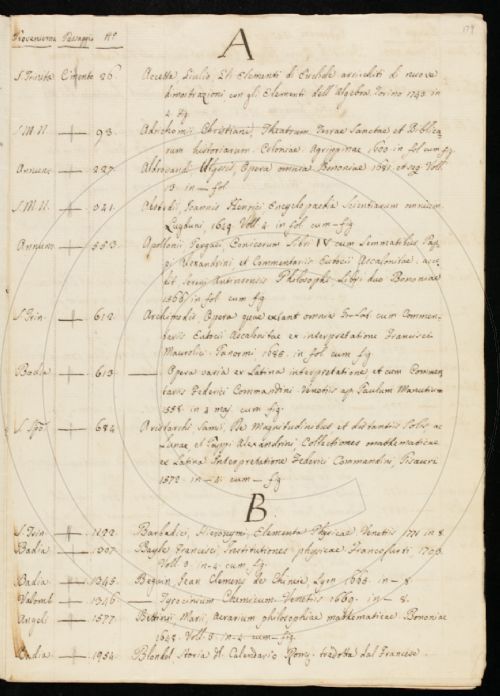 Provenienza Passaggio Nº
A
S. Trinita Cimento 26. Accetta, Giulio, Gli Elementi di Euclide accresciuti di nuove
dimostrazioni con gli Elementi dell'Algebra Torino 1753. in
4. fig
S. M. N. — 93. Adrichomii Christiani, Theatrum Terrae Sanctae et Biblica
rum historiarum. Coloniae Agrippinae 1600 in fol cum fig
Annunc — 227. Aldrovandi Ulyssis, Opera omnia Bononiae 1681. et seq Voll.
13. in — fol
S. M. N. — 341. Alstedii, Joannis Henrici Encyclopaedia Scientiarum omnium.
Lugduni, 1649. Voll 4. in fol cum — fig
Annunc — 553. Apollonii Pergaei, Conicorum Libri IV cum Lemmatibus Pap
pi Alexandrini et Commentariis Eutocii Ascalonitae. acce
dit Sereni Antinsensis Philosophi Libri duo Bononiae
1566 in fol cum fig
S. Trin. — 612. Archimedis Opera quae extant omnia Gr-Lat. cum Commen-
tariis Eutocii Ascalonitae ex interpretatione Francisci
Maurolici. Panormi 1685. in fol cum fig
Badia — 613. — Opera varia ex Latina interpretatione et cum Commen
tariis Federici Commandini. Venetiis ap. Paulum Manutium
1558. in 4 maj. cum fig.
S. Spo — 684 Aristarchi Samii, De Magnitudinibus et distantiis Solis, ac
Lunae, et Pappi Alexandrini Collectiones mathematicae
ex Latina Interpretatione Federici Commandini, Pisauri
1572. in — 4. cum — fig
B.
S. Trin — 1122. Barbadici, Hieronymi, Elementa Physicae Venetiis 1771 in 8.
Badia — 1307. Bayle Francisci Institutiones physicae Francofurti 1703.
Voll 3. in 4. cum fig.
Badia — 1345. Beguin, Jean Elemens de Chimie Lyon 1665. in — 8.
Valomb — 1346 — Tyrocinium Chemicum. Venetiis 1669. in — 8.
Angeli — 1577. Bettinii Marii, Aerarium philosophiae mathematicae. Bononiae
1648. Voll. 3. in. 4. cum — fig.
Badia — 1954. Blondel Storia del Calendario Rom: tradotta dal Francese.